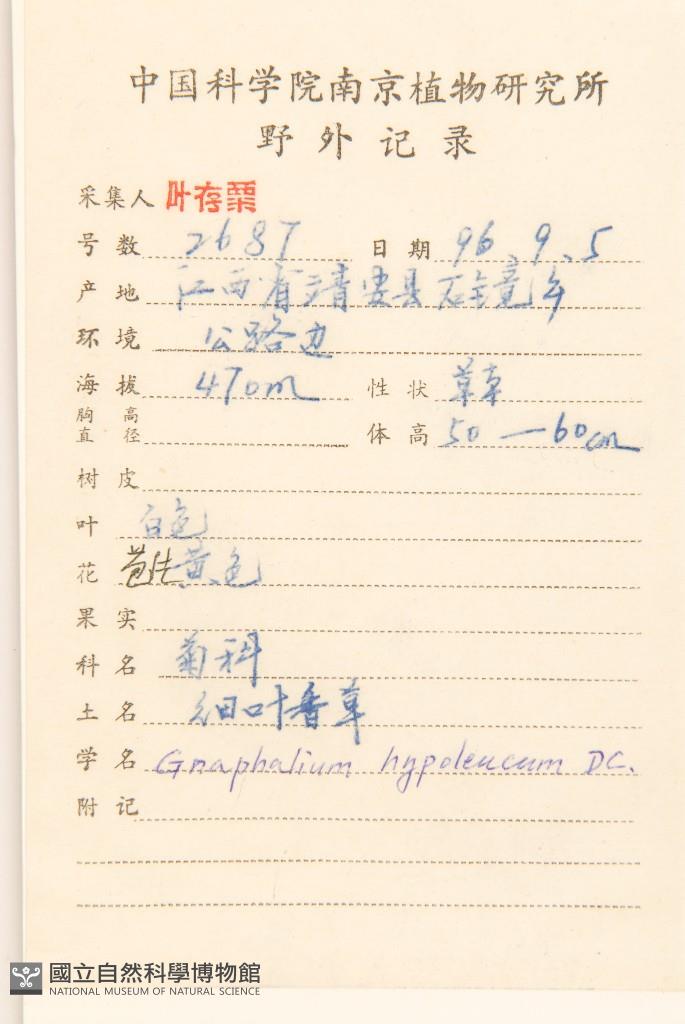 中国科学院南京植物研究所
野外记录
采集人 叶存粟
号数 2687 日期 96.9.5
产地 江西省靖安县石镜乡
环境 公路边
海拔 470m 性状 草本
胸高直径 体高 50—60cm
树皮
叶 白色
花 黄色
果实
科名 菊科
土名 细叶香草
学名 Gnaphalium hypoleucum DC.
附记
國立自然科學博物館
NATIONAL MUSEUM OF NATURAL SCIENCE